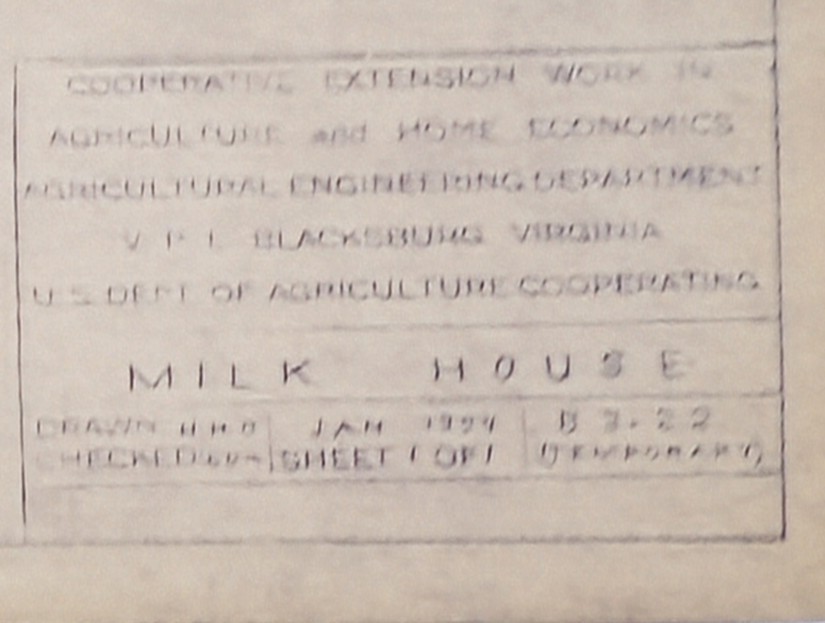 COOPERATIVE EXTENSION WORK IN
AGRICULTURE and HOME ECONOMICS
AGRICULTURAL ENGINEERING DEPARTMENT
V P I BLACKSBURG VIRGINIA
U S DEPT OF AGRICULTURE COOPERATING
MILK HOUSE
DRAWN JAN
CHECKED SHEET 1 OF 1 (TEMPORARY)